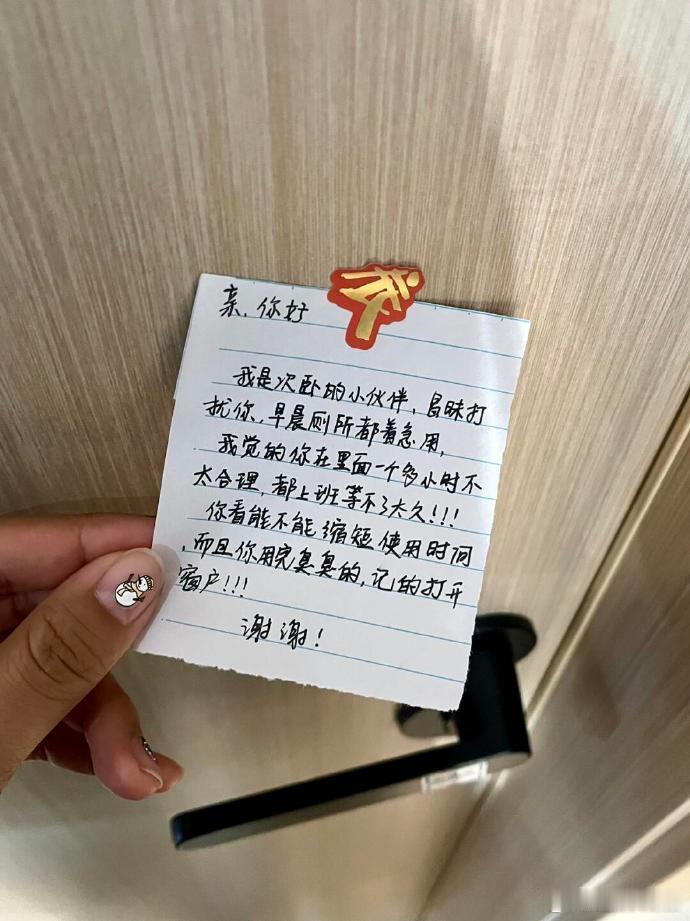 亲,你好
我是次卧的小伙伴,冒昧打
扰你,早晨厕所都着急用,
我觉的你在里面一个多小时不
太合理,都上班等不了太久!!!
你看能不能缩短使用时间
,而且你用完臭臭的,记的打开
窗户!!!
谢谢!